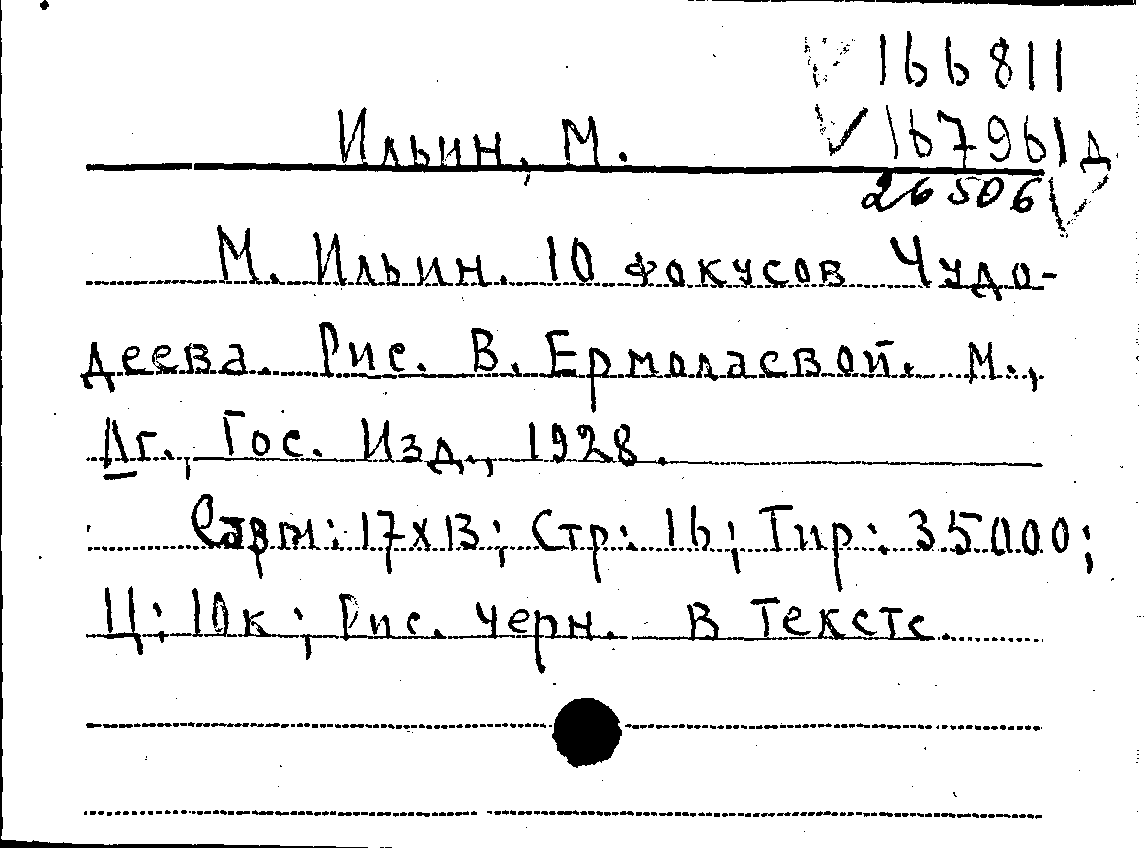 166811
Ильин, М. 167961д
26506
М. Ильин. 10 фокусов Чудо-
деева. Рис. В. Ермолаевой. М.,
Лг., Гос. Изд., 1928.
17х13; Стр: 16; Тир: 35000;
Ц: 10к; Рис. черн. в тексте.